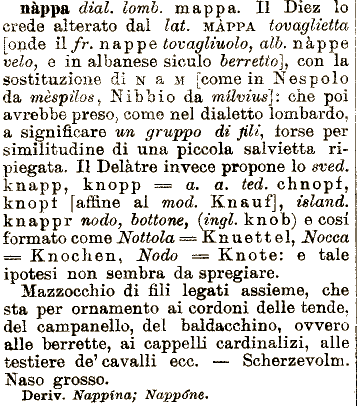 nàppa dial. lomb. mappa. Il Diez lo
crede alterato dal lat. MÀPPA tovaglietta
[onde il fr. nappe tovagliuolo, alb. nàppe
velo, e in albanese siculo berretto], con la
sostituzione di N a M [come in Nespolo
da mèspilos, Nibbio da mílvius]: che poi
avrebbe preso, come nel dialetto lombardo,
a significare un gruppo di fili, forse per
similitudine di una piccola salvietta ri-
piegata. Il Delàtre invece propone lo sved.
knapp, knopp = a. a. ted. chnopf,
knopf [affine al mod. Knauf], island.
knappr nodo, bottone, (ingl. knob) e cosí
formato come Nottola = Knuettel, Nocca
= Knochen, Nodo = Knote: e tale
ipotesi non sembra da spregiare.
Mazzocchio di fili legati assieme, che
sta per ornamento ai cordoni delle tende,
del campanello, del baldacchino, ovvero
alle berrette, ai cappelli cardinalizi, alle
testiere de' cavalli ecc. — Scherzevolm.
Naso grosso.
Deriv. Nappína; Nappóne.